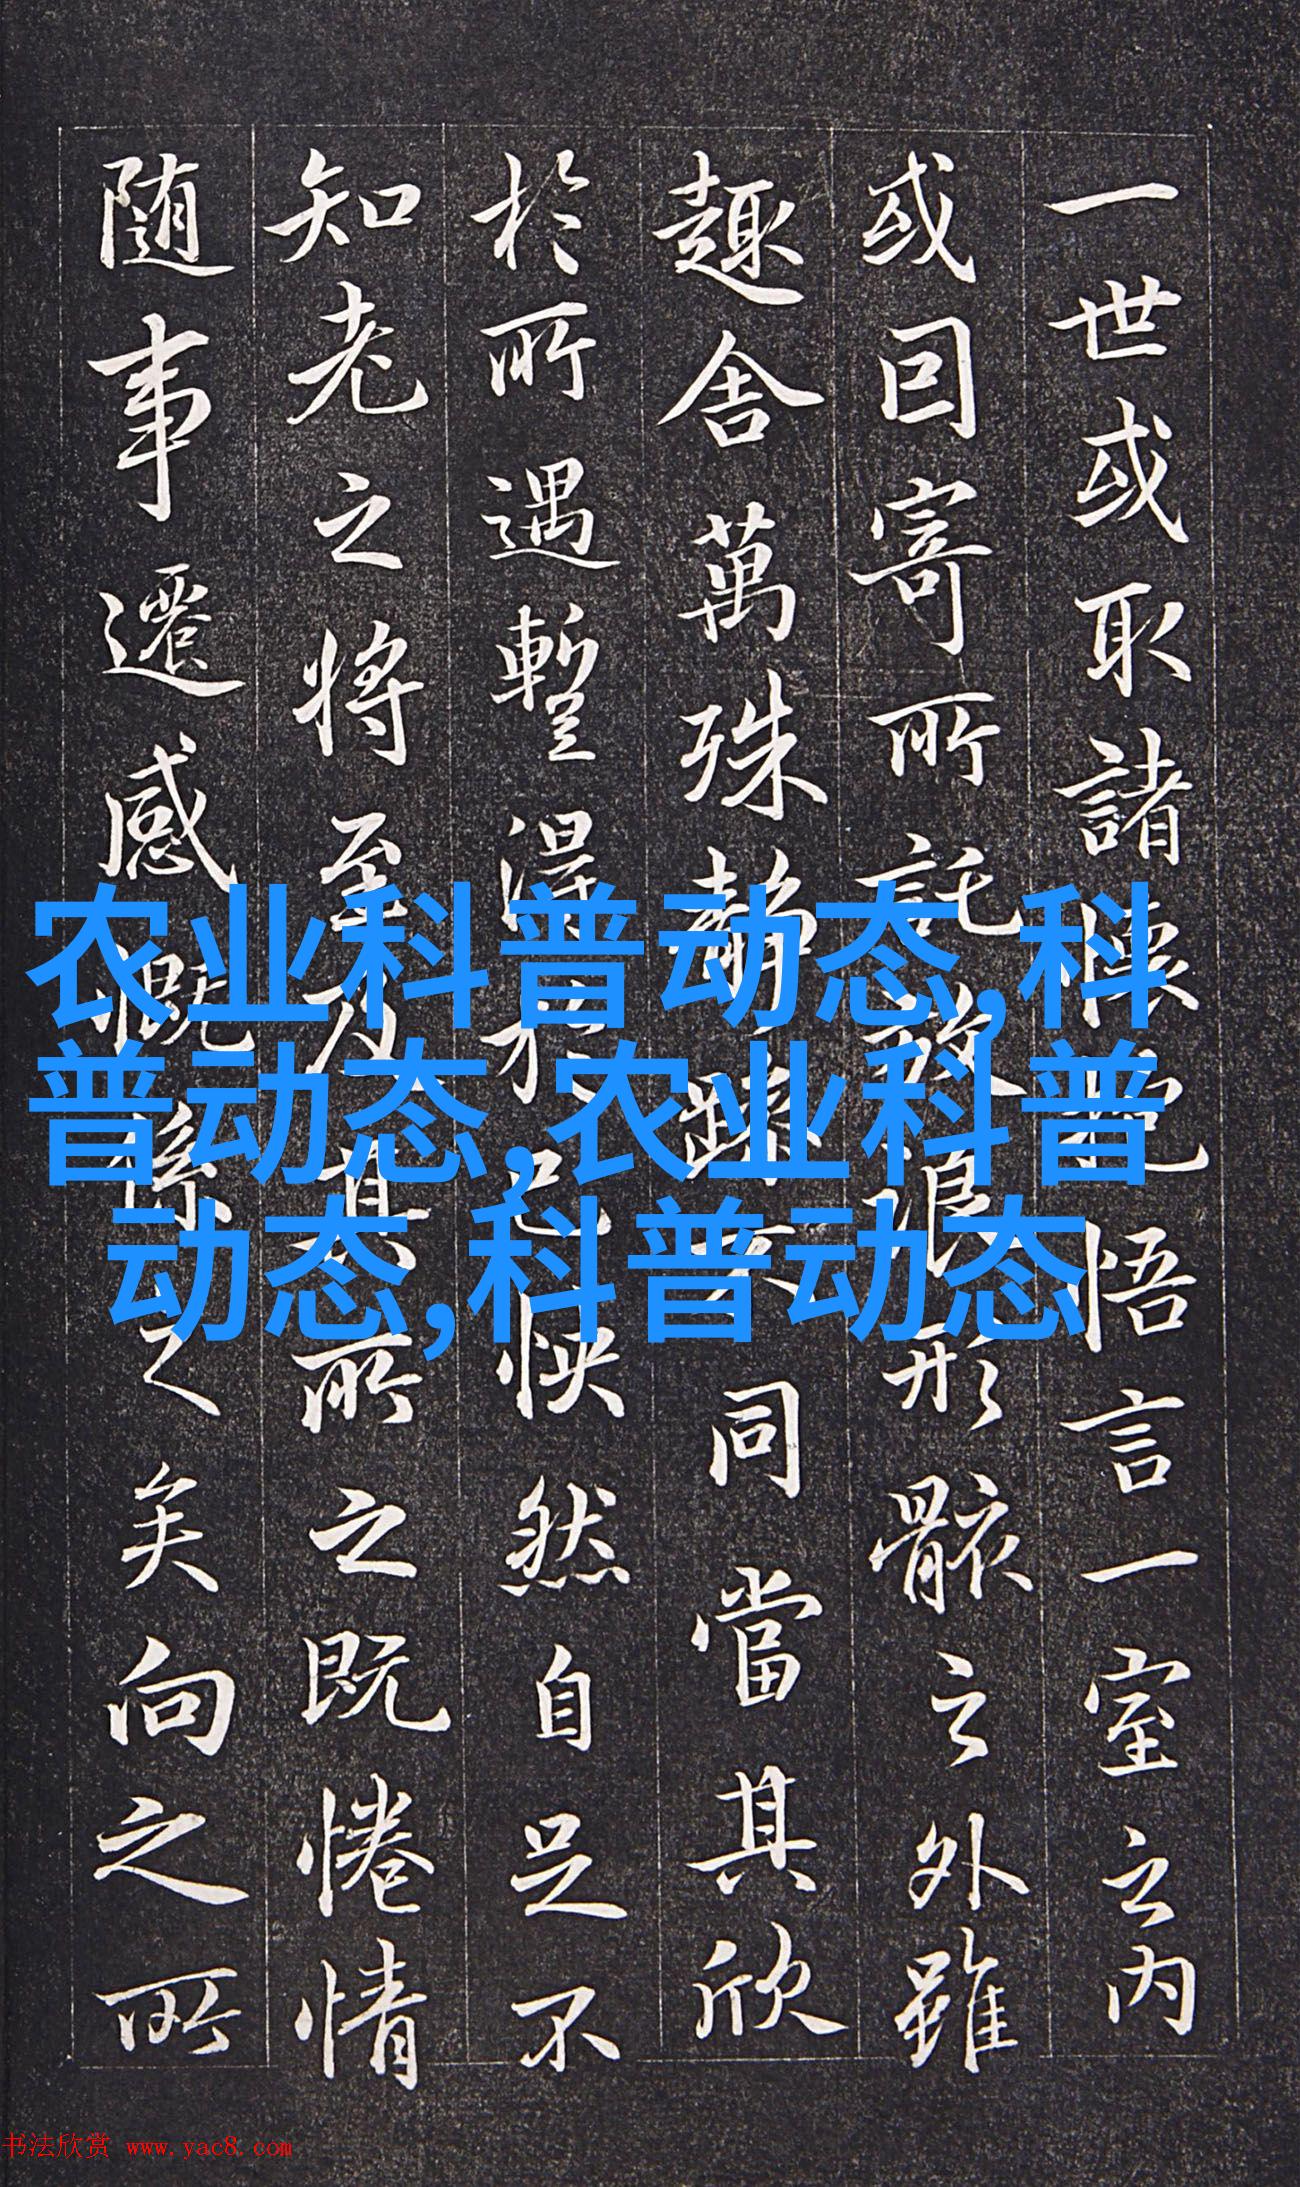 一世或取諸懷抱悟言一室之內
或囙寄所託放浪形骸之外雖
趣舍萬殊靜躁不同當其欣
於所遇暫得於己快然自足不
知老之將至及其所之既惓情
随事遷感慨係之矣向之所
农业科普动态,科
普动态,农业科普
动态,科普动态
书法欣赏 www.yac8.com